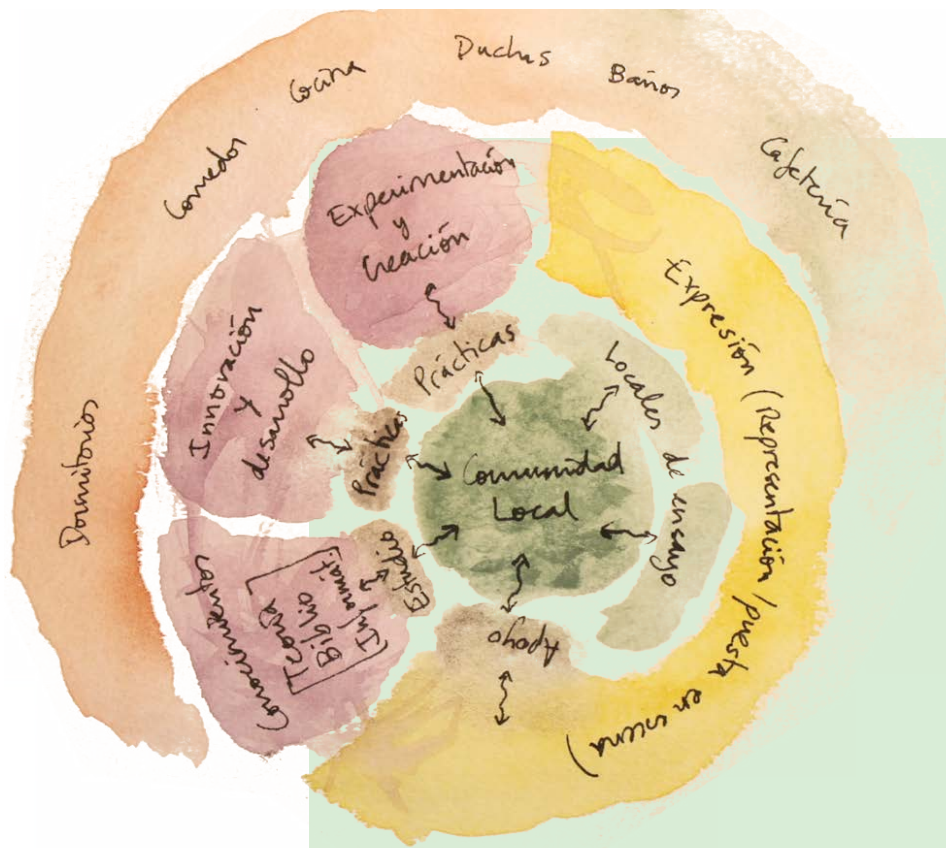 Dormitorios
Comedor
Cocina
Duchas
Baños
Cafetería
Experimentación
y
Creación
Innovación
y
desarrollo
Conocimientos
Teoría
Biblio
Informát.
Prácticas
Prácticas
Estudio
Apoyo
Locales de ensayo
Comunidad
Local
Expresión (Representación / puesta en escena)